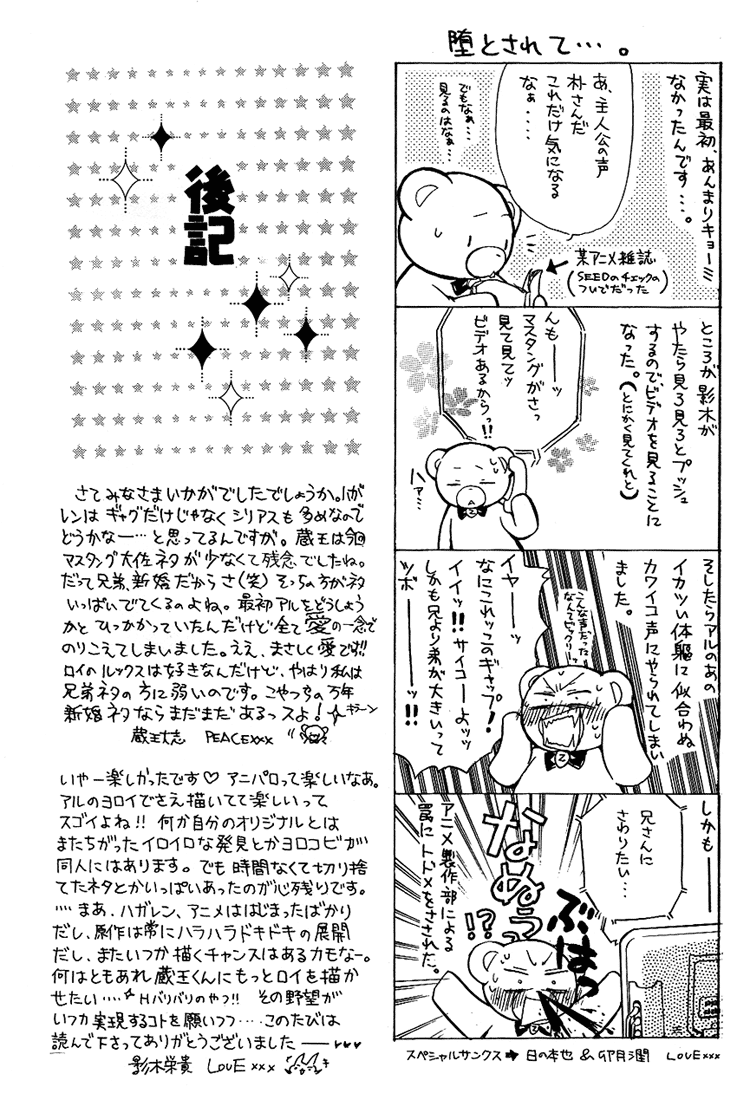 堕とされて…。
実は最初、あんまりキョーミ
なかったんです…。
あ、主人公の声
朴さんだ
これだけ気になる
なぁ…
でもなぁ…
見るのはなぁ…
某アニメ雑誌
(SEEDのチェックの
ついでだった)
ところが影木が
やたら見ろ見ろとプッシュ
するので、ビデオを見ることに
なった。(とにかく見てくれと)
んも――ッ
マスタングがさっ
見て見てッ
ビデオあるからっ!!
ハァ…
そしたらアルのあの
イカツい体躯に似合わぬ
カワイコ声にやられてしまい
ました。
こんな声だった
なんてビックリ――
イヤ――ッ
なにこれッこのギャップ!
イイッ!!サイコーよッッ
しかも兄より弟が大きいって
ツボ――ッ!!
Z
しかも――
兄さんに
さわりたい…
なぬうっ
!?
ぶはっ
アニメ製作部による
罠にトドメをさされた。
スペシャルサンクス➡日の本也&卯月潤 LOVExxx
後記
さてみなさまいかがでしたでしょうか。ハガ
レンはギャグだけじゃなくシリアスも多めなので
どうかなー…と思ってるんですが。蔵王は今回
マスタング大佐ネタが少なくて残念でしたね。
だって兄弟、新婚だからさ(笑)そっちの方がネタ
いっぱいでてくるのよね。最初アルをどうしよう
かとひっかかっていたんだけど全て愛の一念で
のりこえてしまいました。ええ、まさしく愛で!!
ロイのルックスは好きなんだけど、やはり私は
兄弟ネタの方に弱いのです。こやつらの万年
新婚ネタならまだまだあるっスよ!キラーン
蔵王大志 PEACExxx
いやー楽しかったです♡アニパロって楽しいなあ。
アルのヨロイでさえ描いてて楽しいって
スゴイよね!!何か自分のオリジナルとは
またちがったイロイロな発見とかヨロコビが
同人にはあります。でも時間なくて切り捨
てたネタとかいっぱいあったのが心残りです。
….まあ、ハガレン、アニメははじまったばかり
だし、原作は常にハラハラドキドキの展開
だし、またいつか描くチャンスはあるカモなー。
何はともあれ蔵王くんにもっとロイを描か
せたい….Hバリバリのやつ!!その野望が
いつか実現するコトを願いつつ….このたびは
読んで下さってありがとうございました――♥♥♥
影木栄貴 LOVExxx